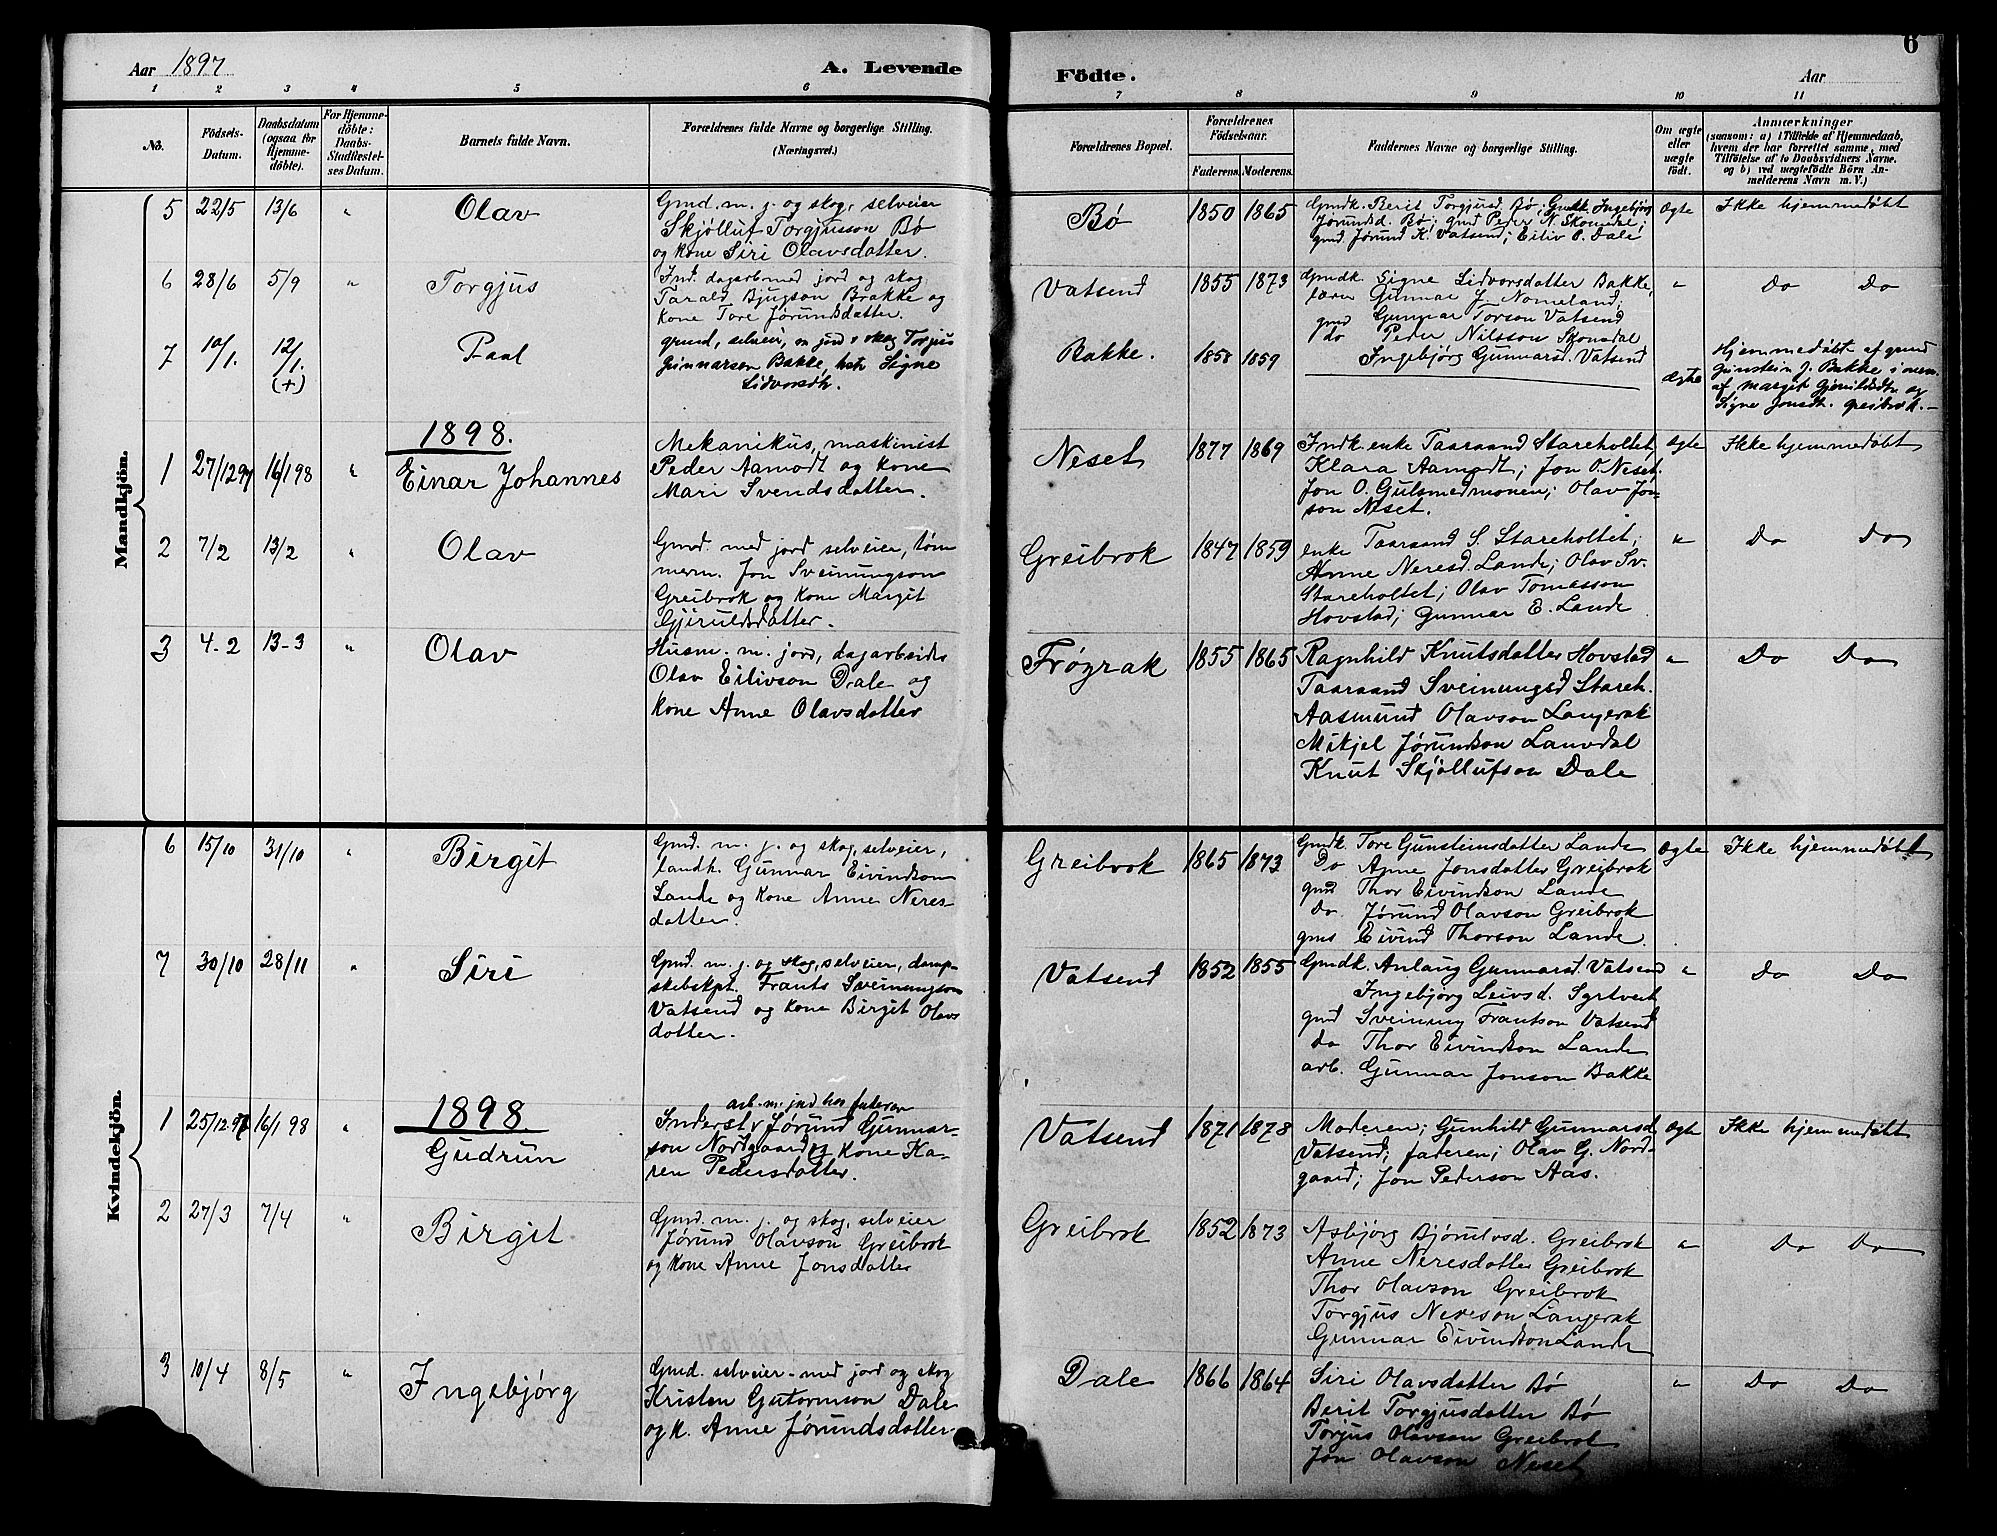 Aar 1897
A. Levende
Födte.
Aar
6
1 2 3 4 5 6 7 8 9 10 11
No.
Födsels-
Datum.
Daabsdatum
(ogsaa for
Hjemme-
döbte).
For Hjemme-
döbte:
Daabs-
Stadfæstel-
ses Datum.
Barnets fulde Navn.
Forældrenes fulde Navne og borgerlige Stilling.
(Næringsvei.)
Forældrenes Bopæl.
Forældrenes
Födselsaar.
Faderens. Moderens.
Faddernes Navne og borgerlige Stilling.
Om ægte
eller
uægte
født.
Anmærkninger
(saasom: a) i Tilfælde af Hjemmedaab,
hvem der har forrettet samme, med
Tilföielse af to Daabsvidners Navne.
og b) ved uægtefödte Börn An-
melderens Navn m. V.)
Mandkjön.
5 22/5 13/6 " Olav
Gmd. m. j. og skog, selveier
Skjølluf Torgjusson Bø
og kone Siri Olavsdatter.
Bø 1850 1865
Gmdk. Berit Torgjusd. Bø; Gmdk. Ingebjør
Jørundsd. Bø; gmd Peder N. Skomedal;
gmd. Jørund K. Vatsend; Eiliv O. Dale
Ægte Ikke hjemmedøbt
6 28/6 5/9 " Torgjus
Ind. dagarb. med jord og skog
Tarald Bjugson Brakke og
kone Tore Jørundsdatter.
Vatsend 1855 1873
Gmdk. Signe Lidvorsdatter Bakke,
lærer Gunnar J. Nomeland;
gmd Gunnar Torson Vatsend
do Peder Nilsson Skomdal
Ingebjörg Gunnarsd. Vatsend
" Do Do
7 10/1. 12/1. (+) Paal
grmd, selveier, m jord o skog Torgjus
Gunnarsen Bakke, hst. Signe
Lidvorsdtr.
Bakke. 1858 1859
Ægte
Hjemmedøbt af grmd
Gunstein J. Bakke i overv.
af Margit Gjeruldsdtr og
Signe Jonsdt. Greibrok.
1898.
1 27/12 97 16/1 98 " Einar Johannes
Mekanikus, maskinist
Peder Aamodt og kone
Mari Svendsdatter.
Neset 1877 1869
Indk. enke Taaraand Stareholtet,
Klara Aamodt; Jon O. Neset;
Jon O. Gulsmedmonen; Olav Jon-
son Neset.
Ægte Ikke hjemmedøbt
2 7/2 13/2 " Olav
Gmd. med jord selveier, tøm
merm. Jon Sveinungson
Greibrok og kone Margit
Gjeruldsdatter.
Greibrok 1847 1859
enke Taaraand S. Stareholtet;
Anne Neresd. Lande; Olav Sv.
Stareholtet; Olav Tomasson
Hovstad; Gunnar E. Lande
" Do Do
3 4-2 13-3 " Olav
Husm. m. jord, dagarbeider
Olav Eilivson Dale og
kone Anne Olavsdatter
Frøyrak 1855 1865
Ragnhild Knutsdatter Hovstad
Taaraand Sveinungsd Stareh.
Aasmund Olavson Langerak
Mikjel Jørundson Lauvdal
Knut Skjøllufson Dale
" Do Do
Kvindekjön.
6 15/10 31/10 " Birgit
Gmd. m. j. og skog, selveier,
landh. Gunnar Eivindson
Lande og kone Anne Neres-
datter.
Greibrok 1865 1873
Gmdk. Tore Gunsteinsdatter Lande
Do Anne Jonsdatter Greibrok
gmd Thor Eivindson Lande
do. Jørund Olavson Greibrok
gmd Eivind Thorson Lande.
Ægte Ikke hjemmedøbt
7 30/10 28/11 " Siri
Gmd. m. j. og skog, selveier, damp-
skibskpt. Frants Sveinungson
Vatsend og kone Birgit Olavs
datter.
Vatsend 1852 1855
Gmdk. Anlaug Gunnarsd. Vatsend
Ingebjörg Leivsd. Syrtveit
gmd Sveinung Frantson Vatsend
do Thor Eivindson Lande
arb. Gunnar Jonson Bakke
" Do Do
1898.
1 25/12 97 16/1 98 " Gudrun
arb. m. jord hos faderen
Inderst Jørund Gunnar-
son Nordgaard og kone Ka-
ren Pedersdatter.
Vatsend 1871 1878
Moderen; Gunhild Gunnarsd
Vatsend; faderen; Olav G. Nord-
gaard; Jon Pederson Aas.
Ægte Ikke hjemmedøbt
2 27/3 7/4 " Birgit
Gmd. m. j. og skog, selveier
Jørund Olavson Greibrok
og kone Anne Jonsdatter
Greibrok 1852 1873
Asbjørg Bjørulvsd. Greibrok
Anne Neresdatter Greibrok
Thor Olavson Greibrok
Torgjus Nereson Langerak
Gunnar Eivindson Lande
" Do Do
3 10/4 8/5 " Ingebjørg
Gmd. selveier med jord og skog
Kristen Gutormson Dale
og k. Anne Jørundsdatter
Dale 1866 1864
Siri Olavsdatter Bø
Berit Torgjusdatter Bø
Torjus Olavson Greibrok
Jon Olavson Neset
" Do Do